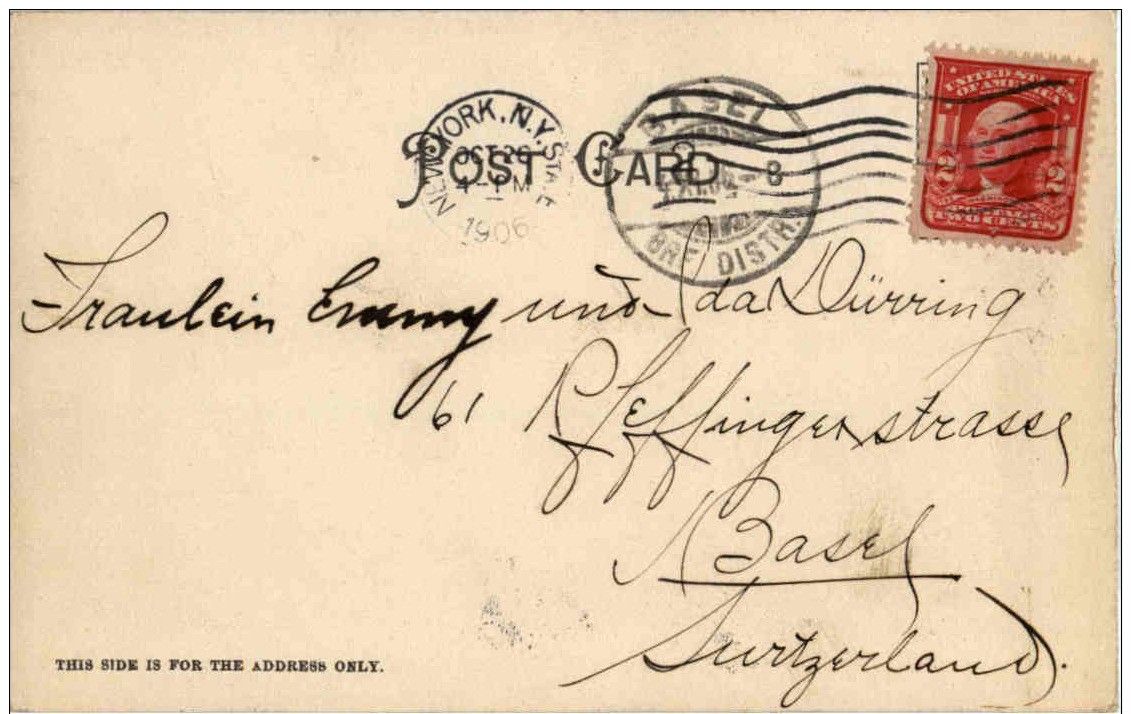 NEW YORK, N.Y. STA. E
OCT 26
4-PM
1906
BASEL
8
BRF. DISTR.
UNITED STATES
OF AMERICA
2 2
TWO CENTS
POST CARD
Fräulein Emmy und Ida Dürring
61 Pfeffingerstrasse
Basel
Switzerland.
THIS SIDE IS FOR THE ADDRESS ONLY.